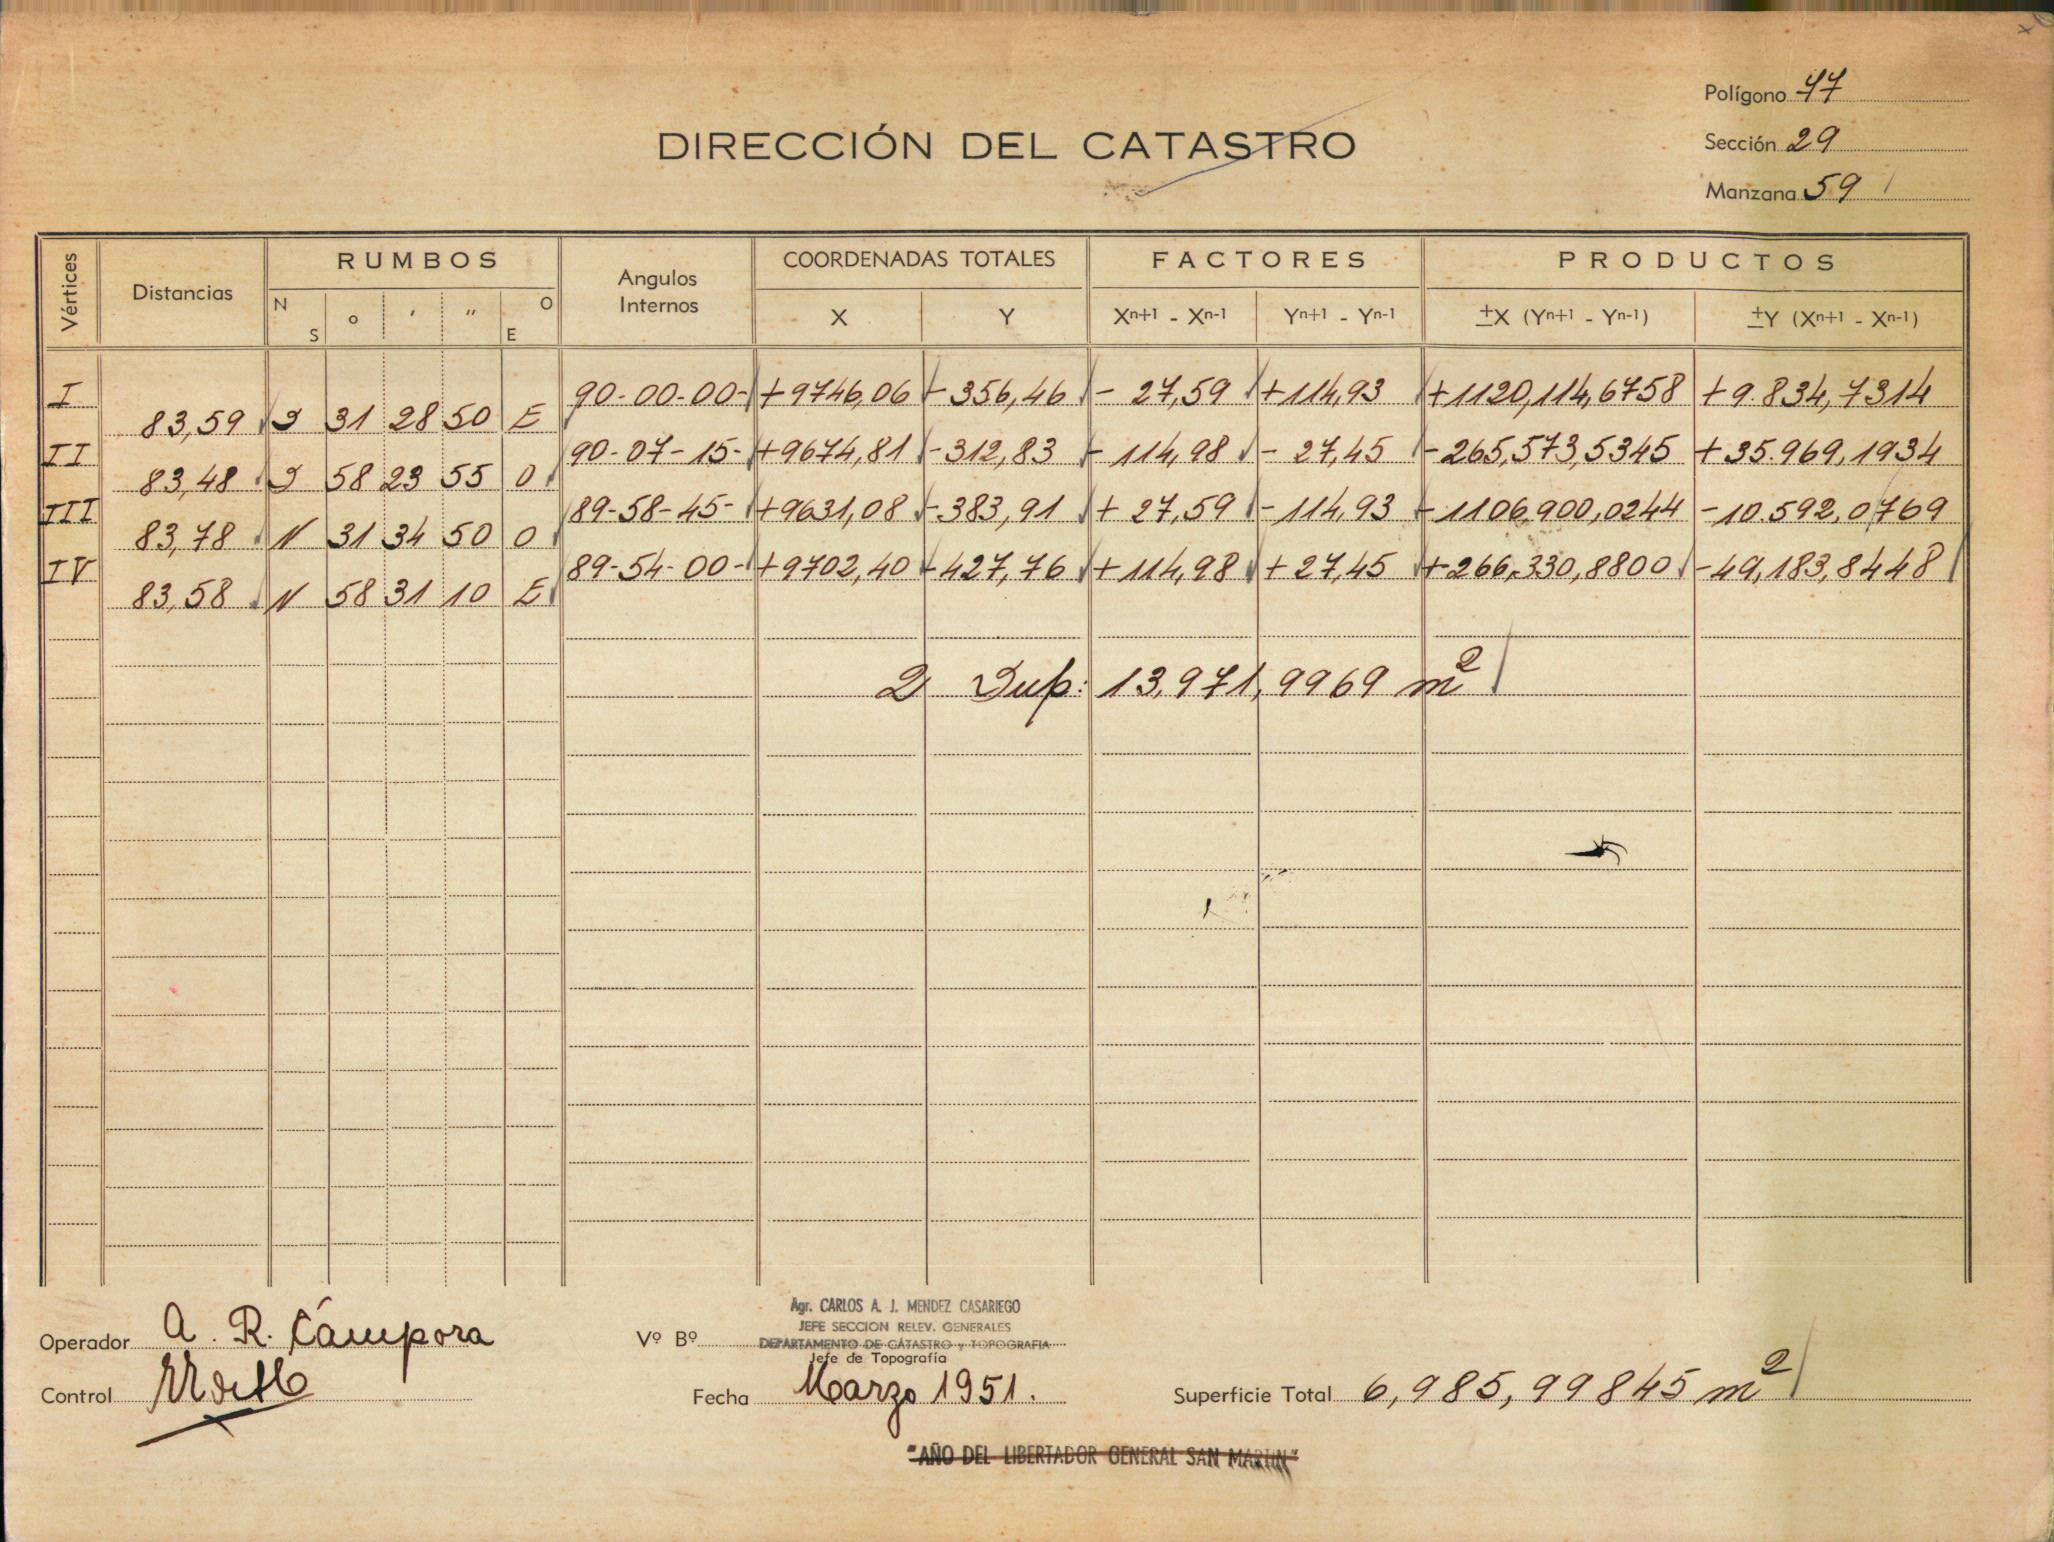 Polígono 47
DIRECCIÓN DEL CATASTRO
Sección 29
Manzana 59
Vértices Distancias RUMBOS Angulos Internos COORDENADAS TOTALES FACTORES PRODUCTOS
N S o ' " O E X Y Xn+1 - Xn-1 Yn+1 - Yn-1 ±X (Yn+1 - Yn-1) ±Y (Xn+1 - Xn-1)
I 90-00-00- +9746,06 -356,46 - 27,59 +114,93 +1120,114,6758 +9.834,7314
83,59 S 31 28 50 E
II 90-07-15- +9674,81 -312,83 - 114,98 - 27,45 -265,573,5345 +35.969,1934
83,48 S 58 23 55 O
III 89-58-45- +9631,08 -383,91 + 27,59 -114,93 -1106,900,0244 -10.592,0769
83,78 N 31 34 50 O
IV 89-54-00- +9702,40 -427,76 +114,98 +27,45 +266,330,8800 -49,183,8448
83,58 N 58 31 10 E
2 Sup: 13,971,9969 m2
Agr. CARLOS A. J. MENDEZ CASARIEGO
JEFE SECCION RELEV. GENERALES
Operador A. R. Cámpora Vº Bº DEPARTAMENTO DE CATASTRO y TOPOGRAFIA
Jefe de Topografía
Control Fecha Marzo 1951. Superficie Total 6,985,99845 m2
"AÑO DEL LIBERTADOR GENERAL SAN MARTIN"